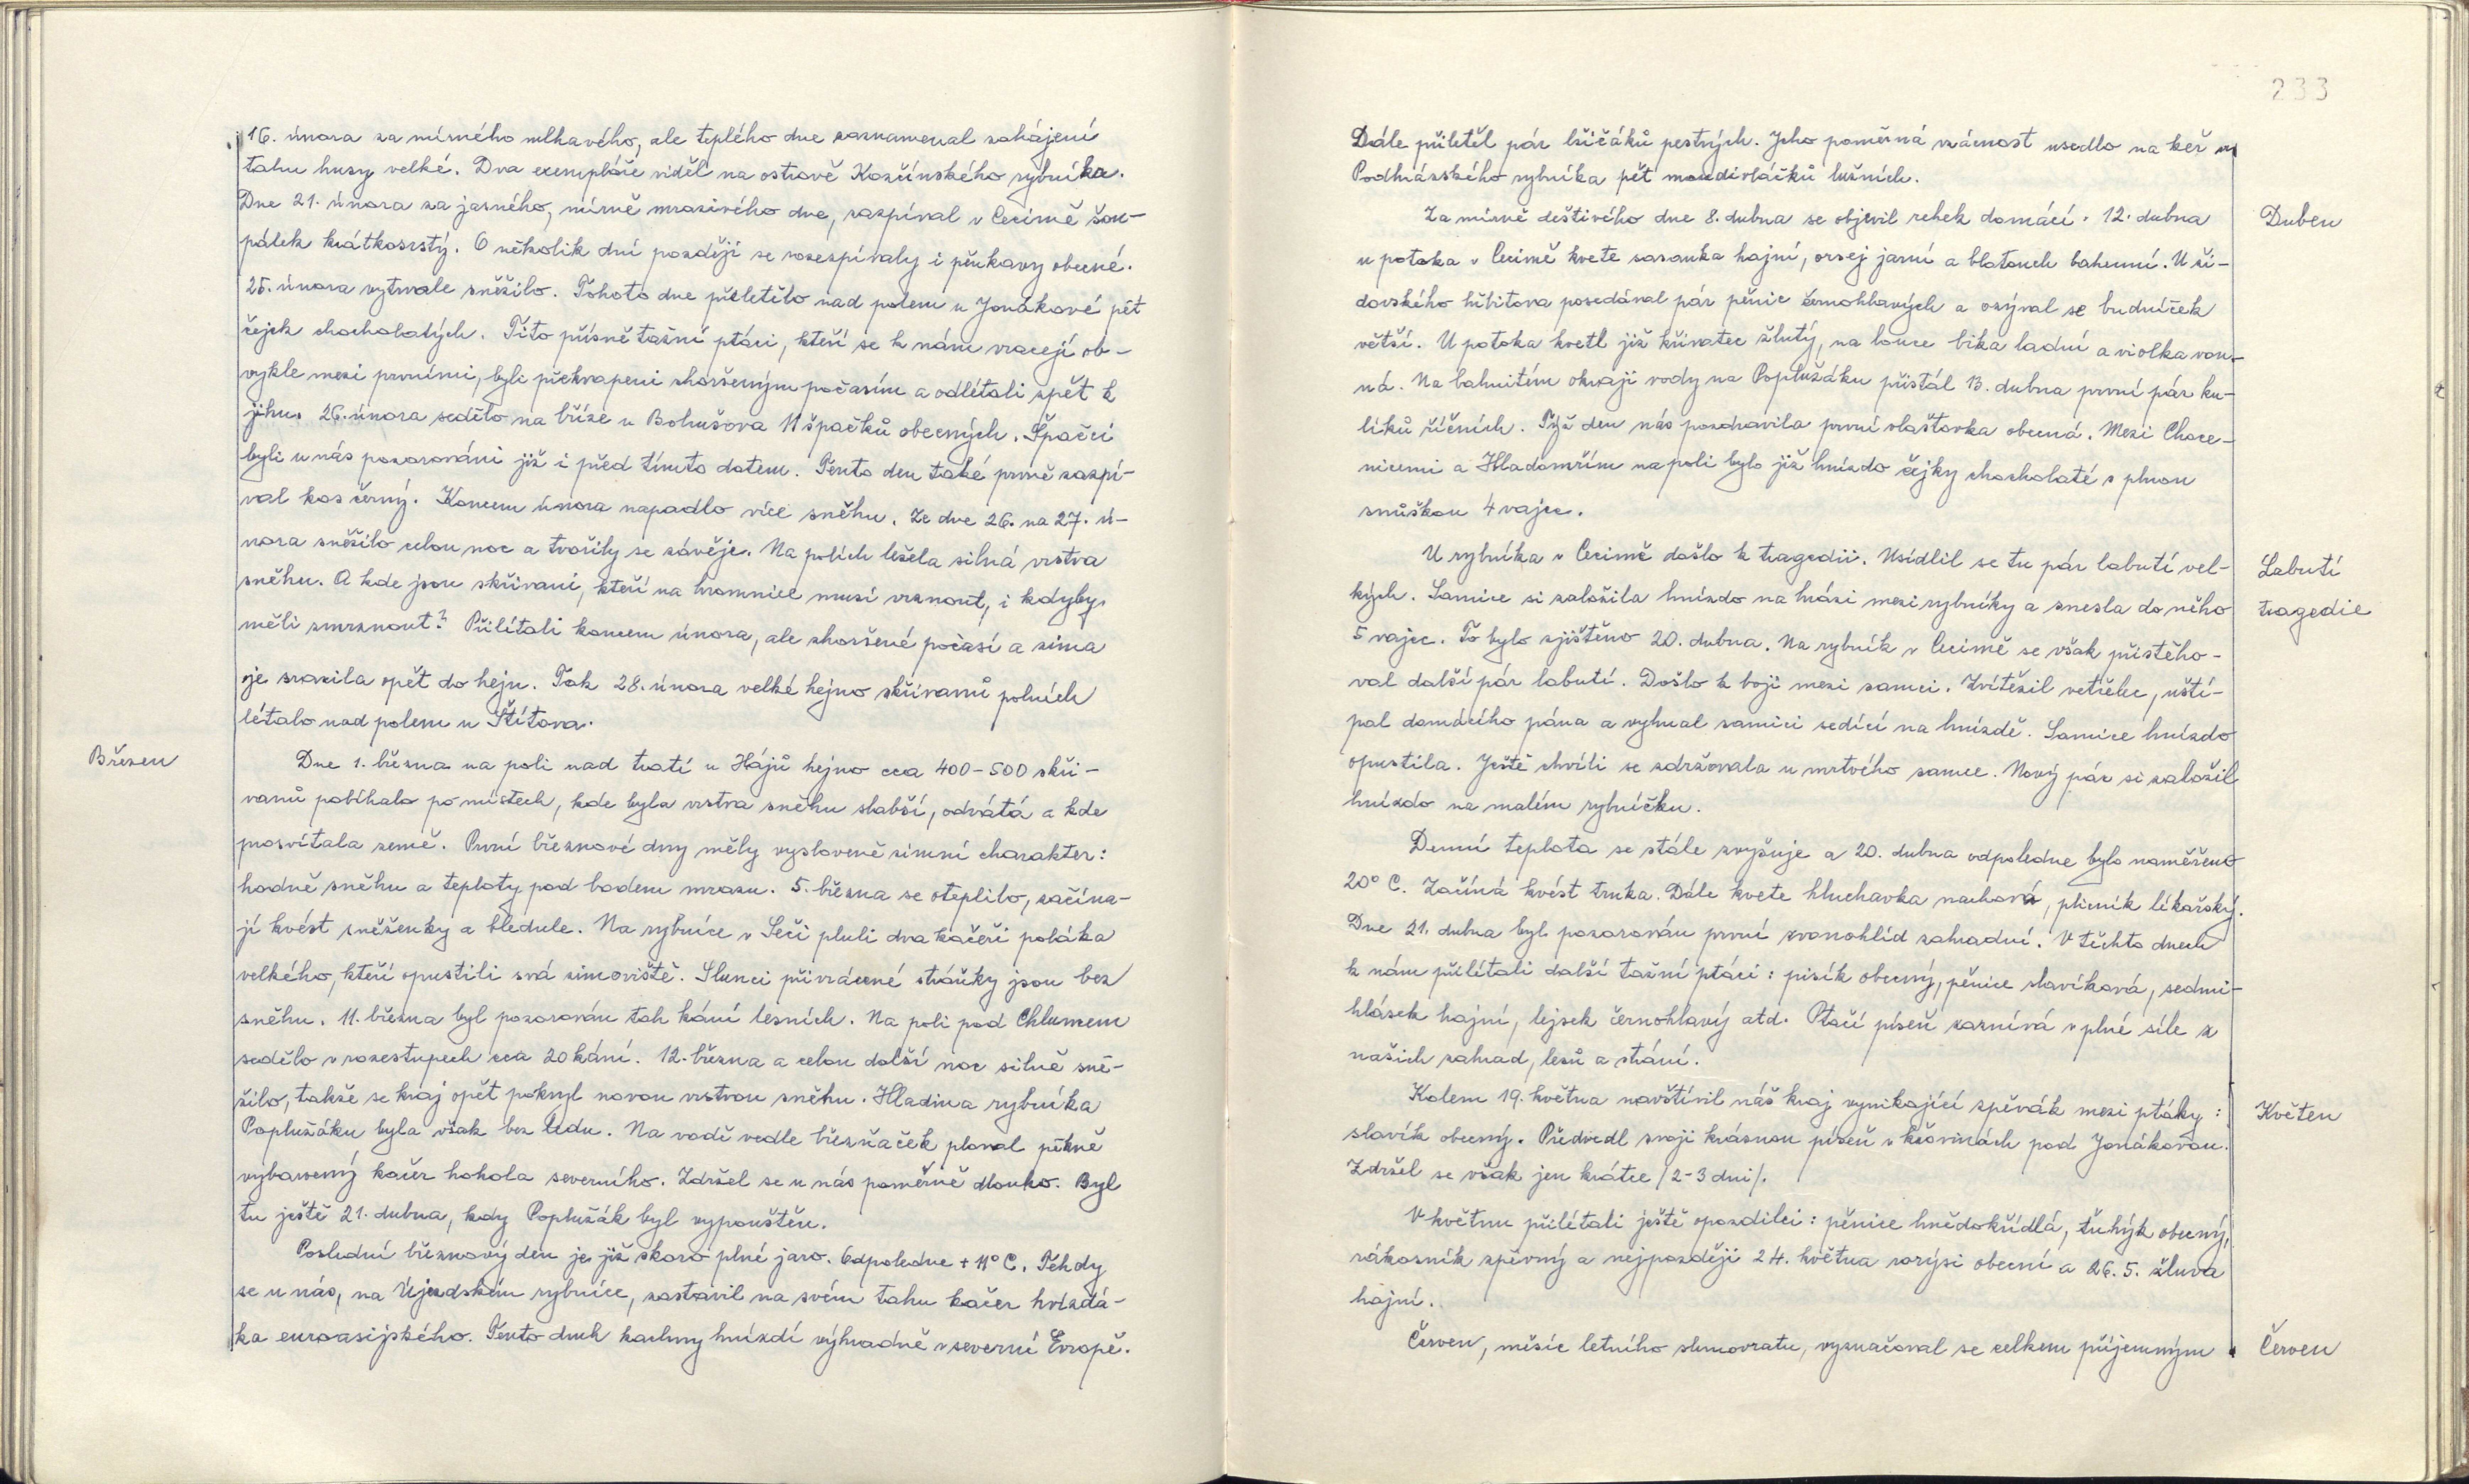 16. února za mírného mlhavého, ale teplého dne zaznamenal zahájení
tahu husy velké. Dva exempláře viděl na ostrově Kozčínského rybníka.
Dne 21. února za jasného, mírně mrazivého dne, zazpíval v Cecimě šou-
pálek krátkoprstý. O několik dní později se rozezpívaly i pěnkavy obecné.
25. února vytrvale sněžilo. Tohoto dne přiletělo nad polem u Jonákové pět
čejek chocholatých. Tito přísně tažní ptáci, kteří se k nám vracejí ob-
vykle mezi prvními, byli překvapeni zhoršeným počasím a odlétali zpět k
jihu. 26. února sedělo na bříze u Bohušova 11 špačků obecných. Špačci
byli u nás pozorováni již i před tímto datem. Tento den také prvně zazpí-
val kos černý. Koncem února napadlo více sněhu. Ze dne 26. na 27. ú-
nora sněžilo celou noc a tvořily se závěje. Na polích ležela silná vrstva
sněhu. A kde jsou skřivani, kteří na hromnice musí vrznout, i kdyby
měli zmrznout? Přilítali koncem února, ale zhoršené počasí a zima
je srazila opět do hejn. Tak 28. února velké hejno skřivanů polních
létalo nad polem u Štítova.
Březen
Dne 1. března na poli nad tratí u Hájů hejno cca 400-500 skři-
vanů pobíhalo po místech, kde byla vrstva sněhu slabší, odvátá a kde
prosvítala země. První březnové dny měly vysloveně zimní charakter:
hodně sněhu a teploty pod bodem mrazu. 5. března se oteplilo, začína-
jí kvést sněženky a bledule. Na rybníce v Seči pluli dva kačeři poláka
velkého, kteří opustili svá zimoviště. Slunci přivrácené stráňky jsou bez
sněhu. 11. března byl pozorován tah kání lesních. Na poli pod Chlumem
sedělo v rozestupech cca 20 kání. 12. března a celou další noc silně sně-
žilo, takže se kraj opět pokryl novou vrstvou sněhu. Hladina rybníka
Poplužáku byla však bez ledu. Na vodě vedle březňaček ploval pěkně
vybarvený kačer hohola severního. Zdržel se u nás poměrně dlouho. Byl
tu ještě 21. dubna, kdy Poplužák byl vypouštěn.
Poslední březnový den je již skoro plné jaro. Odpoledne + 11° C. Tehdy
se u nás, na Újezdském rybníce, zastavil na svém tahu kačer hvízdá-
ka euroasijského. Tento druh kachny hnízdí výhradně v severní Evropě.
233
Dále přiletěl pár lžičáků pestrých. Jeho poměrná vzácnost usedlo na keř u
Podhrázského rybníka pět moudivláčků lužních.
Duben
Za mírně deštivého dne 8. dubna se objevil rehek domácí. 12. dubna
u potoka v Cecimě kvete sasanka hajní, orsej jarní a blatouch bahenní. U ži-
dovského hřbitova posedával pár pěnic černohlavých a ozýval se budníček
větší. U potoka kvetl již křivatec žlutý, na louce bika ladní a violka von-
ná. Na bahnitém okraji vody na Poplužáku přistál 13. dubna první pár ku-
líků říčních. Týž den nás pozdravila první vlaštovka obecná. Mezi Choce-
nicemi a Hladomřím na poli bylo již hnízdo čejky chocholaté s plnou
snůškou 4 vajec.
Labutí
tragedie
U rybníka v Cecimě došlo k tragedii. Usídlil se tu pár labutí vel-
kých. Samice si založila hnízdo na hrázi mezi rybníky a snesla do něho
5 vajec. To bylo zjištěno 20. dubna. Na rybník v Cecimě se však přistěho-
val další pár labutí. Došlo k boji mezi samci. Zvítězil vetřelec, uští-
pal domácího pána a vyhnal samici sedící na hnízdě. Samice hnízdo
opustila. Ještě chvíli se zdržovala u mrtvého samce. Nový pár si založil
hnízdo na malém rybníčku.
Denní teplota se stále zvyšuje a 20. dubna odpoledne bylo naměřeno
20° C. Začíná kvést trnka. Dále kvete hluchavka nachová, plicník lékařský.
Dne 21. dubna byl pozorován první zvonohlík zahradní. V těchto dnech
k nám přilétali další tažní ptáci: pisík obecný, pěnice slavíková, sedmi-
hlásek hajní, lejsek černohlavý atd. Ptačí píseň zaznívá v plné síle z
našich zahrad, lesů a strání.
Květen
Kolem 19. května navštívil náš kraj vynikající zpěvák mezi ptáky:
slavík obecný. Předvedl svoji krásnou píseň v křovinách pod Jonákovou.
Zdržel se však jen krátce /2-3 dni/.
V květnu přilétali ještě opozdilci: pěnice hnědokřídlá, ťuhýk obecný,
rákosník zpěvný a nejpozději 24. května rorýsi obecní a 26. 5. žluva
hajní.
Červen
Červen, měsíc letního slunovratu, vyznačoval se celkem příjemným